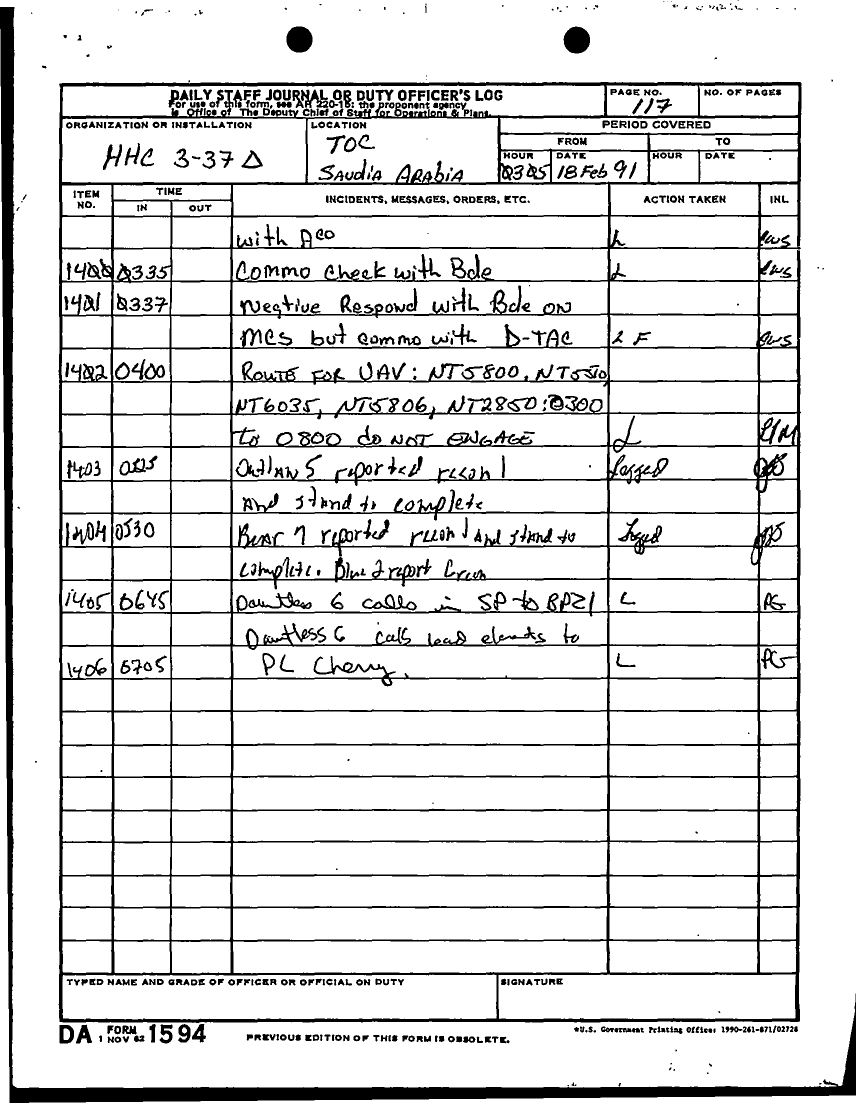 DAILY STAFF JOURNAL OR DUTY OFFICER'S LOG
For use of this form, see AR 220-15; the proponent agency
is Office of The Deputy Chief of Staff for Operations & Plans.
PAGE NO.
117
NO. OF PAGES
ORGANIZATION OR INSTALLATION
HHC 3-37 Δ
LOCATION
TOC
Saudia Arabia
PERIOD COVERED
FROM
TO
HOUR
DATE
HOUR
DATE
0305
18 Feb 91
ITEM NO.
TIME
IN
OUT
INCIDENTS, MESSAGES, ORDERS, ETC.
ACTION TAKEN
INL
with Aco L ews
1400 0335 Commo check with Bde L ews
1401 0337 Negtive Respond with Bde on
MCS but commo with D-TAC L F ews
1402 0400 Route for UAV: NT5800, NT5510,
NT6035, NT5806, NT2850: 0300
to 0800 do NOT ENGAGE L
1403 Outlaw 5 reported recon 1 logged
And stand to complete
1404 0530 Bear 7 reported recon 1 And stand to logged
complete. Blue 2 report
1405 0645 Dauntless 6 calls in SP to BP21 L PG
Dauntless 6 calls lead elements to
1406 0705 PL Cherry. L PG
TYPED NAME AND GRADE OF OFFICER OR OFFICIAL ON DUTY
SIGNATURE
DA FORM 1594
1 NOV 62
PREVIOUS EDITION OF THIS FORM IS OBSOLETE.
*U.S. Government Printing Office: 1990-261-871/02728